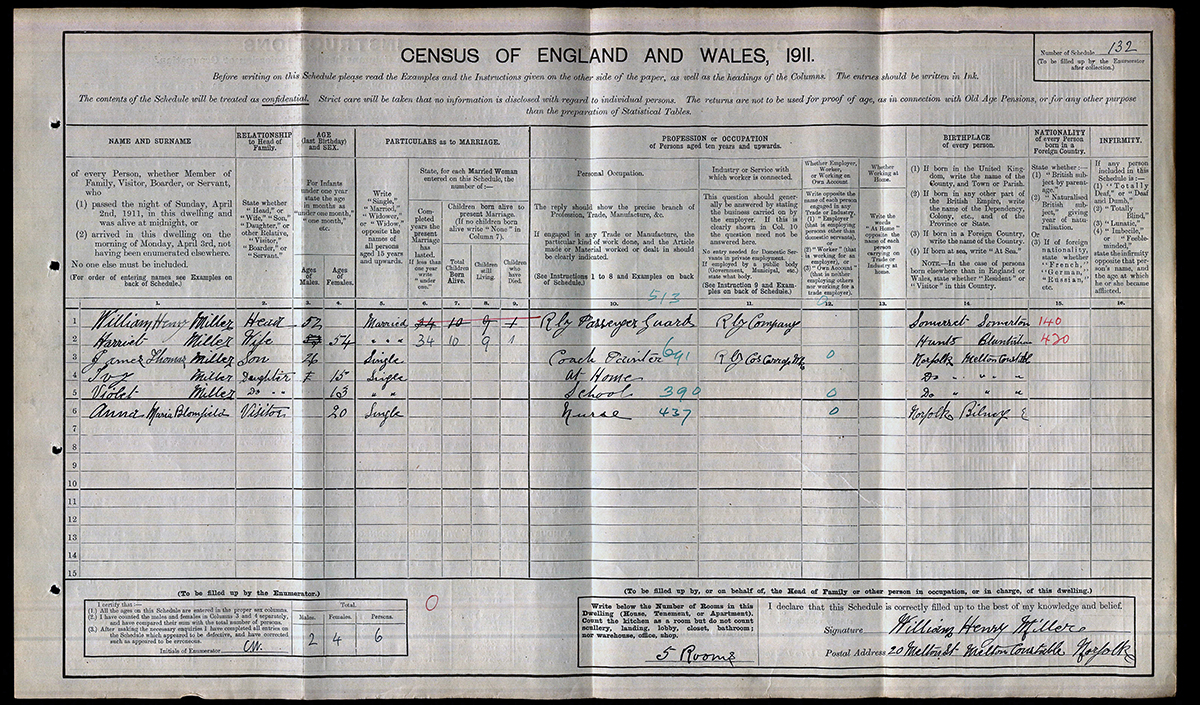 CENSUS OF ENGLAND AND WALES, 1911.
Number of Schedule 132
(To be filled up by the Enumerator
after collection.)
Before writing on this Schedule please read the Examples and the Instructions given on the other side of the paper, as well as the headings of the Columns. The entries should be written in Ink.
The contents of the Schedule will be treated as confidential. Strict care will be taken that no information is disclosed with regard to individual persons. The returns are not to be used for proof of age, as in connection with Old Age Pensions, or for any other purpose
than the preparation of Statistical Tables.
NAME AND SURNAME
of every Person, whether Member of
Family, Visitor, Boarder, or Servant,
who
(1) passed the night of Sunday, April
2nd, 1911, in this dwelling and
was alive at midnight, or
(2) arrived in this dwelling on the
morning of Monday, April 3rd, not
having been enumerated elsewhere.
No one else must be included.
(For order of entering names see Examples on
back of Schedule.)
1.
RELATIONSHIP
to Head of
Family.
State whether
"Head," or
"Wife," "Son,"
"Daughter," or
other Relative,
"Visitor,"
"Boarder," or
"Servant."
2.
AGE
(last Birthday)
and SEX.
For Infants
under one year
state the age
in months as
"under one month,"
"one month,"
etc.
Ages
of
Males.
3.
Ages
of
Females.
4.
PARTICULARS as to MARRIAGE.
Write
"Single,"
"Married,"
"Widower,"
or "Widow,"
opposite the
names of
all persons
aged 15 years
and upwards.
5.
State, for each Married Woman
entered on this Schedule, the
number of:—
Com-
pleted
years the
present
Marriage
has
lasted.
If less than
one year
write
"under
one."
6.
Children born alive to
present Marriage.
(If no children born
alive write "None" in
Column 7).
Total
Children
Born
Alive.
7.
Children
still
Living.
8.
Children
who
have
Died.
9.
PROFESSION or OCCUPATION
of Persons aged ten years and upwards.
Personal Occupation.
The reply should show the precise branch of
Profession, Trade, Manufacture, &c.
If engaged in any Trade or Manufacture, the
particular kind of work done, and the Article
made or Material worked or dealt in should
be clearly indicated.
(See Instructions 1 to 8 and Examples on back
of Schedule.)
10.
513
Industry or Service with
which worker is connected.
This question should gener-
ally be answered by stating
the business carried on by
the employer. If this is
clearly shown in Col. 10
the question need not be
answered here.
No entry needed for Domestic Ser-
vants in private employment.
If employed by a public body
(Government, Municipal, etc.)
state what body.
(See Instruction 9 and Exam-
ples on back of Schedule.)
11.
Whether Employer,
Worker,
or Working on
Own Account.
Write opposite the
name of each person
engaged in any
Trade or Industry,
(1) "Employer"
(that is employing
persons other than
domestic servants),
or
(2) "Worker" (that
is working for an
employer), or
(3) "Own Account"
(that is neither
employing others
nor working for a
trade employer).
12.
Whether
Working at
Home.
Write the
words
"At Home"
opposite the
name of each
person
carrying on
Trade or
Industry at
Home.
13.
BIRTHPLACE
of every person.
(1) If born in the United King-
dom, write the name of the
County, and Town or Parish.
(2) If born in any other part of
the British Empire, write
the name of the Dependency,
Colony, etc., and of the
Province or State.
(3) If born in a Foreign Country,
write the name of the Country.
(4) If born at sea, write "At Sea."
NOTE.—In the case of persons
born elsewhere than in England or
Wales, state whether "Resident" or
"Visitor" in this Country.
14.
NATIONALITY
of every Person
born in a
Foreign Country.
State whether:—
(1) "British sub-
ject by parent-
age,"
(2) "Naturalised
British sub-
ject," giving
year of natu-
ralisation.
Or
(3) If of foreign
nationality,
state whether
"French,"
"German,"
"Russian,"
etc.
15.
INFIRMITY.
If any person
included in this
Schedule is:—
(1) "Totally
Deaf," or "Deaf
and Dumb,"
(2) "Totally
Blind,"
(3) "Lunatic,"
(4) "Imbecile,"
or "Feeble-
minded,"
state the infirmity
opposite that per-
son's name, and
the age at which
he or she became
afflicted.
16.
1 William Henry Miller Head 52 Married 34 10 9 1 Rly Passenger Guard Rly Company Somerset Somerton 140
2 Harriet Miller Wife 54 " " " 34 10 9 1 Hunts Bluntisham 420
3 James Thomas Miller Son 26 Single Coach Painter 691 0 Norfolk Melton Constable
4 Ivy Miller Daughter 15 Single At Home Do " " "
5 Violet Miller Do " " 13 " " School 390 0 Do " " "
6 Anna Maria Blomfield Visitor 20 Single Nurse 437 0 Norfolk Bilney E
7
8
9
10
11
12
13
14
15
(To be filled up by the Enumerator.)
I certify that:—
(1.) All the ages on this Schedule are entered in the proper sex columns.
(2.) I have counted the males and females in Columns 3 and 4 separately,
and have compared their sum with the total number of persons.
(3.) After making the necessary enquiries I have completed all entries on
the Schedule which appeared to be defective, and have corrected
such as appeared to be erroneous.
Initials of Enumerator
Total.
Males. Females. Persons.
2 4 6
0
(To be filled up by, or on behalf of, the Head of Family or other person in occupation, or in charge, of this dwelling.)
Write below the Number of Rooms in this
Dwelling (House, Tenement, or Apartment).
Count the kitchen as a room but do not count
scullery, landing, lobby, closet, bathroom;
nor warehouse, office, shop.
5 Rooms
I declare that this Schedule is correctly filled up to the best of my knowledge and belief.
Signature William Henry Miller
Postal Address 20 Melton St Melton Constable Norfolk